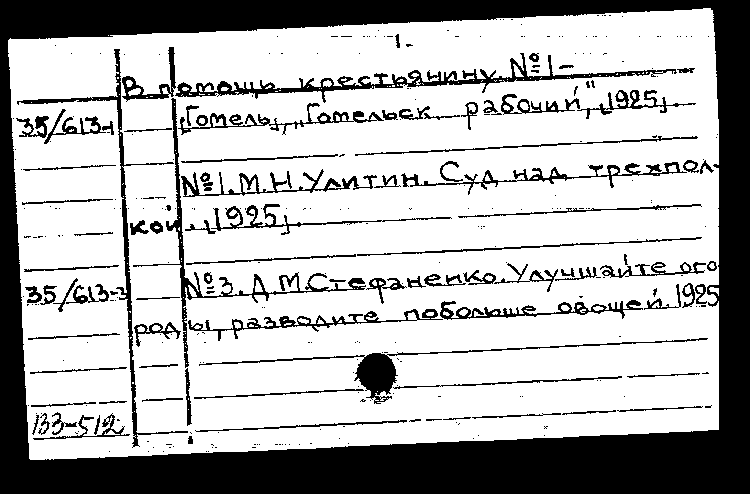 1.
В помощь крестьянину. №1-
35/613-1 [Гомель], "Гомельск. рабочий", [1925].
№1. М.Н. Улитин. Суд над трехпол-
кой. [1925].
35/613-3 №3. Д.М. Стефаненко. Улучшайте ого
роды, разводите побольше овощей. 1925
133-512